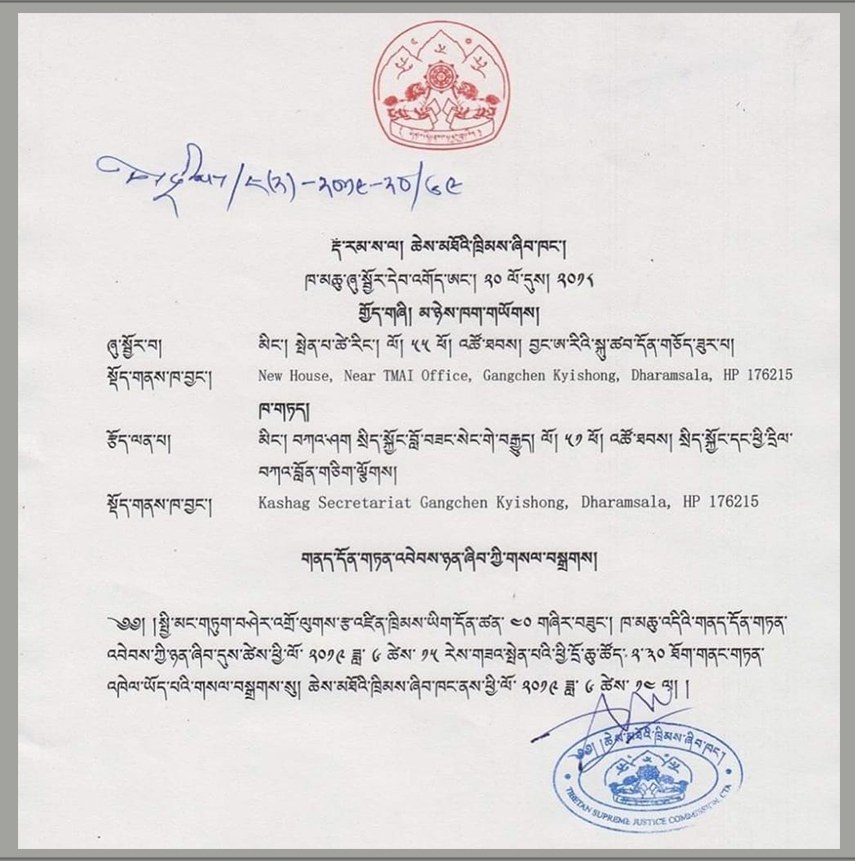 རྡོ་རམ་ས་ལ། ཆེས་མཐོའི་ཁྲིམས་ཞིབ་ཁང་།
ཁ་མཆུ་ཞུ་སྦྱོར་དེབ་འགོད་ཨང་། ༢༠ ལོ་དུས། ༢༠༡༨
གྱོད་གཞི། མ་ཉེས་ཁག་གཡོགས།
ཞུ་སྦྱོར་བ། མིང་། སྤེན་པ་ཚེ་རིང་། ལོ། ༥༥ ཕོ། འཚོ་ཐབས། བྱང་ཨ་རིའི་སྐུ་ཚབ་དོན་གཅོད་ཟུར་པ།
སྡོད་གནས་ཁ་བྱང་། New House, Near TMAI Office, Gangchen Kyishong, Dharamsala, HP 176215
ཁ་གཏད།
རྩོད་ལན་པ། མིང་། བཀའ་ཤག སྲིད་སྐྱོང་བློ་བཟང་སེང་གེ་བརྒྱུད། ལོ། ༥༡ ཕོ། འཚོ་ཐབས། སྲིད་སྐྱོང་དང་ཕྱི་དྲིལ་
བཀའ་བློན་གཅིག་ལྕོགས།
སྡོད་གནས་ཁ་བྱང་། Kashag Secretariat Gangchen Kyishong, Dharamsala, HP 176215
གནད་དོན་གཏན་འབེབས་ཉན་ཞིབ་ཀྱི་གསལ་བསྒྲགས།
༄༅། །སྤྱི་མང་གཏུག་བཤེར་འགྲོ་ལུགས་རྩ་འཛིན་ཁྲིམས་ཡིག་དོན་ཚན་ ༤༠ གཞིར་བཟུང་། ཁ་མཆུ་འདིའི་གནད་དོན་གཏན་
འབེབས་ཀྱི་ཉན་ཞིབ་དུས་ཚེས་ཕྱི་ལོ་ ༢༠༡༩ ཟླ་ ༦ ཚེས་ ༡༥ རེས་གཟའ་སྤེན་པའི་ཕྱི་དྲོ་ཆུ་ཚོད་ ༢་༣༠ ཐོག་གནང་གཏན་
འཁེལ་ཡོད་པའི་གསལ་བསྒྲགས་སུ། ཆེས་མཐོའི་ཁྲིམས་ཞིབ་ཁང་ནས་ཕྱི་ལོ་ ༢༠༡༩ ཟླ་ ༦ ཚེས་ ༡༤ ལ། །
༄༅། །ཆེས་མཐོའི་ཁྲིམས་ཞིབ་ཁང་།
TIBETAN SUPREME JUSTICE COMMISSION, CTA